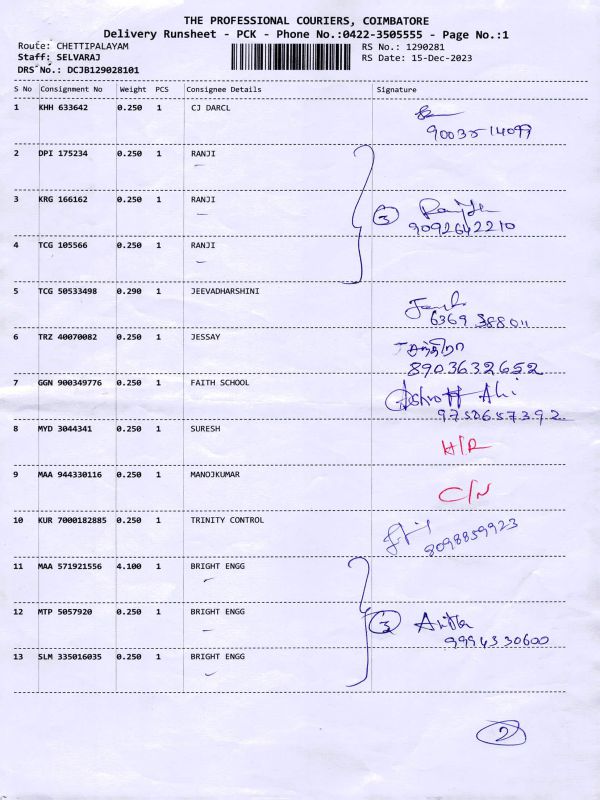 THE PROFESSIONAL COURIERS, COIMBATORE
Delivery Runsheet - PCK - Phone No.:0422-3505555 - Page No.:1
Route: CHETTIPALAYAM RS No.: 1290281
Staff: SELVARAJ RS Date: 15-Dec-2023
DRS No.: DCJB129028101
S No Consignment No Weight PCS Consignee Details Signature
1 KHH 633642 0.250 1 CJ DARCL
9003514099
2 DPI 175234 0.250 1 RANJI
3 KRG 166162 0.250 1 RANJI
3
9092642210
4 TCG 105566 0.250 1 RANJI
5 TCG 50533498 0.290 1 JEEVADHARSHINI
6369 388011
6 TRZ 40070082 0.250 1 JESSAY
8903632652
7 GGN 900349776 0.250 1 FAITH SCHOOL
9750657392
8 MYD 3044341 0.250 1 SURESH
H/R
9 MAA 944330116 0.250 1 MANOJKUMAR
C/N
10 KUR 7000182885 0.250 1 TRINITY CONTROL
8098859923
11 MAA 571921556 4.100 1 BRIGHT ENGG
12 MTP 5057920 0.250 1 BRIGHT ENGG
3
9994330600
13 SLM 335016035 0.250 1 BRIGHT ENGG
2